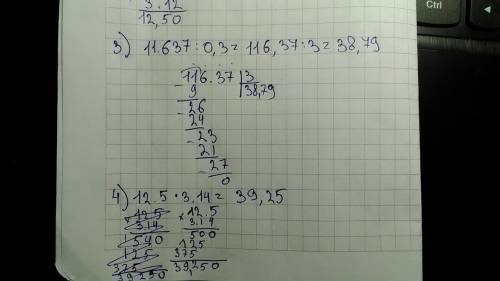 3.12
12,50
3) 11.637 : 0,3 = 116,37 : 3 = 38,79
116.37 | 3
- 9 | 38,79
26
- 24
23
- 21
27
- 0
4) 12.5 · 3.14 = 39,25
12.5 × 12.5
3.14 3.14
540 500
125 125
375 375
39250 39,250
Ctrl